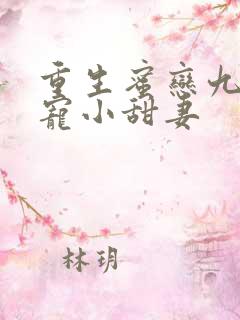 重生蜜戀九
寵小甜妻
林玥